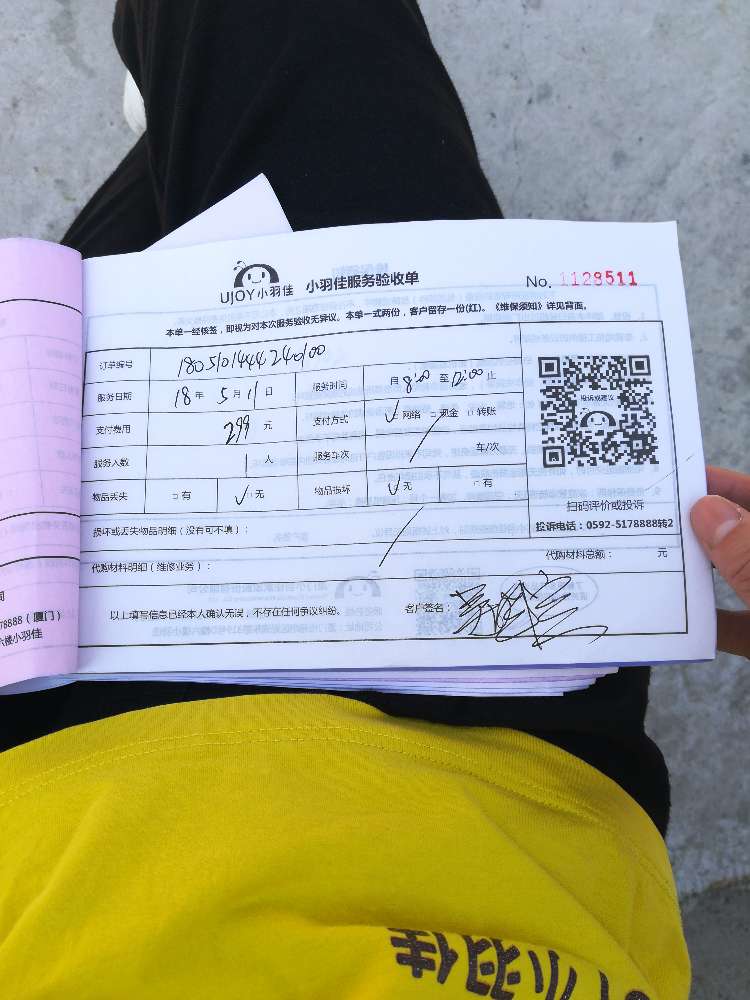 UJOY小羽佳 小羽佳服务验收单 No. 1128511
本单一经核签，即视为对本次服务验收无异议。本单一式两份，客户留存一份(红)。《维保须知》详见背面。
订单编号 1805101444240100
服务日期 18 年 5 月 11 日 服务时间 月 8:00 至 12:00 止
支付费用 299 元 支付方式 ✓ 网络 □ 现金 □ 转账
服务人数 1 人 服务车次 / 车/次
物品丢失 □ 有 ✓ 无 物品损坏 ✓ 无 □ 有
投诉或建议
扫码评价或投诉
投诉电话：0592-5178888转2
损坏或丢失物品明细（没有可不填）：
代购材料明细（维修业务）： 代购材料总额： 元
以上填写信息已经本人确认无误，不存在任何争议纠纷。 客户签名：
78888（厦门）
六楼小羽佳
小羽佳